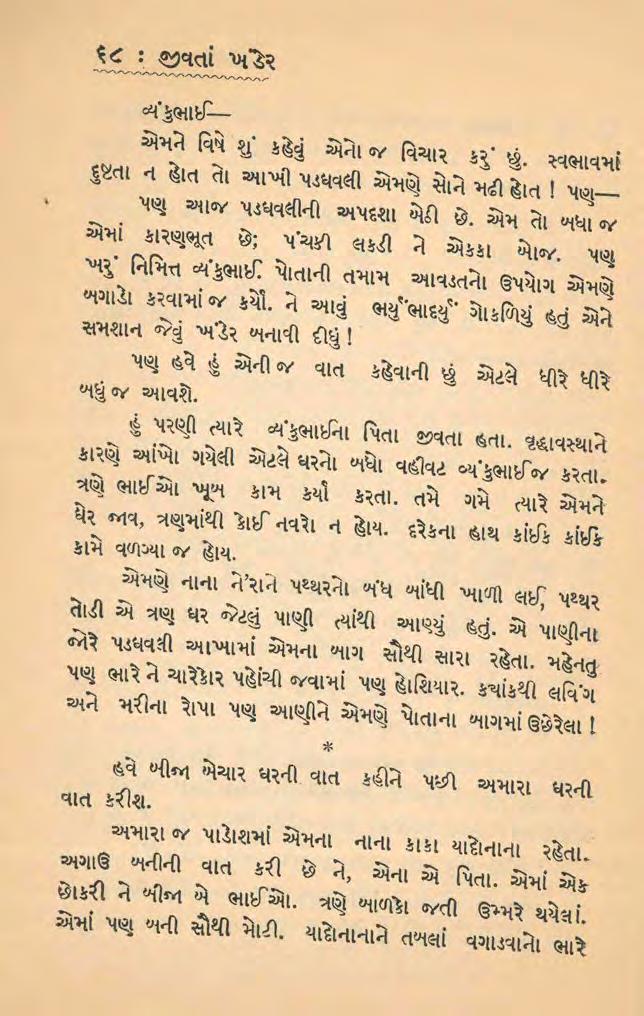 ૬૮ : જીવતાં ખંડેર
વ્યંકુભાઈ—
એમને વિષે શું કહેવું એનો જ વિચાર કરું છું. સ્વભાવમાં
દુષ્ટતા ન હોત તો આખી પડધવલી એમણે સોને મઢી હોત ! પણ—
પણ આજ પડધવલીની અપદશા બેઠી છે. એમ તો બધા જ
એમાં કારણભૂત છે; પંચકી લકડી ને એકકા બોજ. પણ
ખરું નિમિત્ત વ્યંકુભાઈ. પોતાની તમામ આવડતનો ઉપયોગ એમણે
બગાડો કરવામાં જ કર્યો. ને આવું ભર્યુંભાદર્યું ગોકળિયું હતું એને
સમશાન જેવું ખંડેર બનાવી દીધું !
પણ હવે હું એની જ વાત કહેવાની છું એટલે ધીરે ધીરે
બધું જ આવશે.
હું પરણી ત્યારે વ્યંકુભાઈના પિતા જીવતા હતા. વૃદ્ધાવસ્થાને
કારણે આંખો ગયેલી એટલે ઘરનો બધો વહીવટ વ્યંકુભાઈ જ કરતા.
ત્રણે ભાઈઓ ખૂબ કામ કર્યા કરતા. તમે ગમે ત્યારે એમને
ઘેર જાવ, ત્રણમાંથી કોઈ નવરો ન હોય. દરેકના હાથ કાંઈક કાંઈક
કામે વળગ્યા જ હોય.
એમણે નાના ને'રાને પથ્થરનો બંધ બાંધી ખાળી લઈ, પથ્થર
તોડી એ ત્રણ ઘર જેટલું પાણી ત્યાંથી આણ્યું હતું. એ પાણીના
જોરે પડધવલી આખામાં એમના બાગ સૌથી સારા રહેતા. મહેનતુ
પણ ભારે ને ચારેકોર પહોંચી જવામાં પણ હોશિયાર. કયાંકથી લવિંગ
અને મરીના રોપા પણ આણીને એમણે પોતાના બાગમાં ઉછેરેલા !
*
હવે બીજા બેચાર ઘરની વાત કહીને પછી અમારા ઘરની
વાત કરીશ.
અમારા જ પાડોશમાં એમના નાના કાકા યાદોનાના રહેતા.
અગાઉ બનીની વાત કરી છે ને, એના એ પિતા. એમાં એક
છોકરી ને બીજા બે ભાઈઓ. ત્રણે બાળકો જતી ઉમ્મરે થયેલાં.
એમાં પણ બની સૌથી મોટી. યાદોનાનાને તબલાં વગાડવાનો ભારે